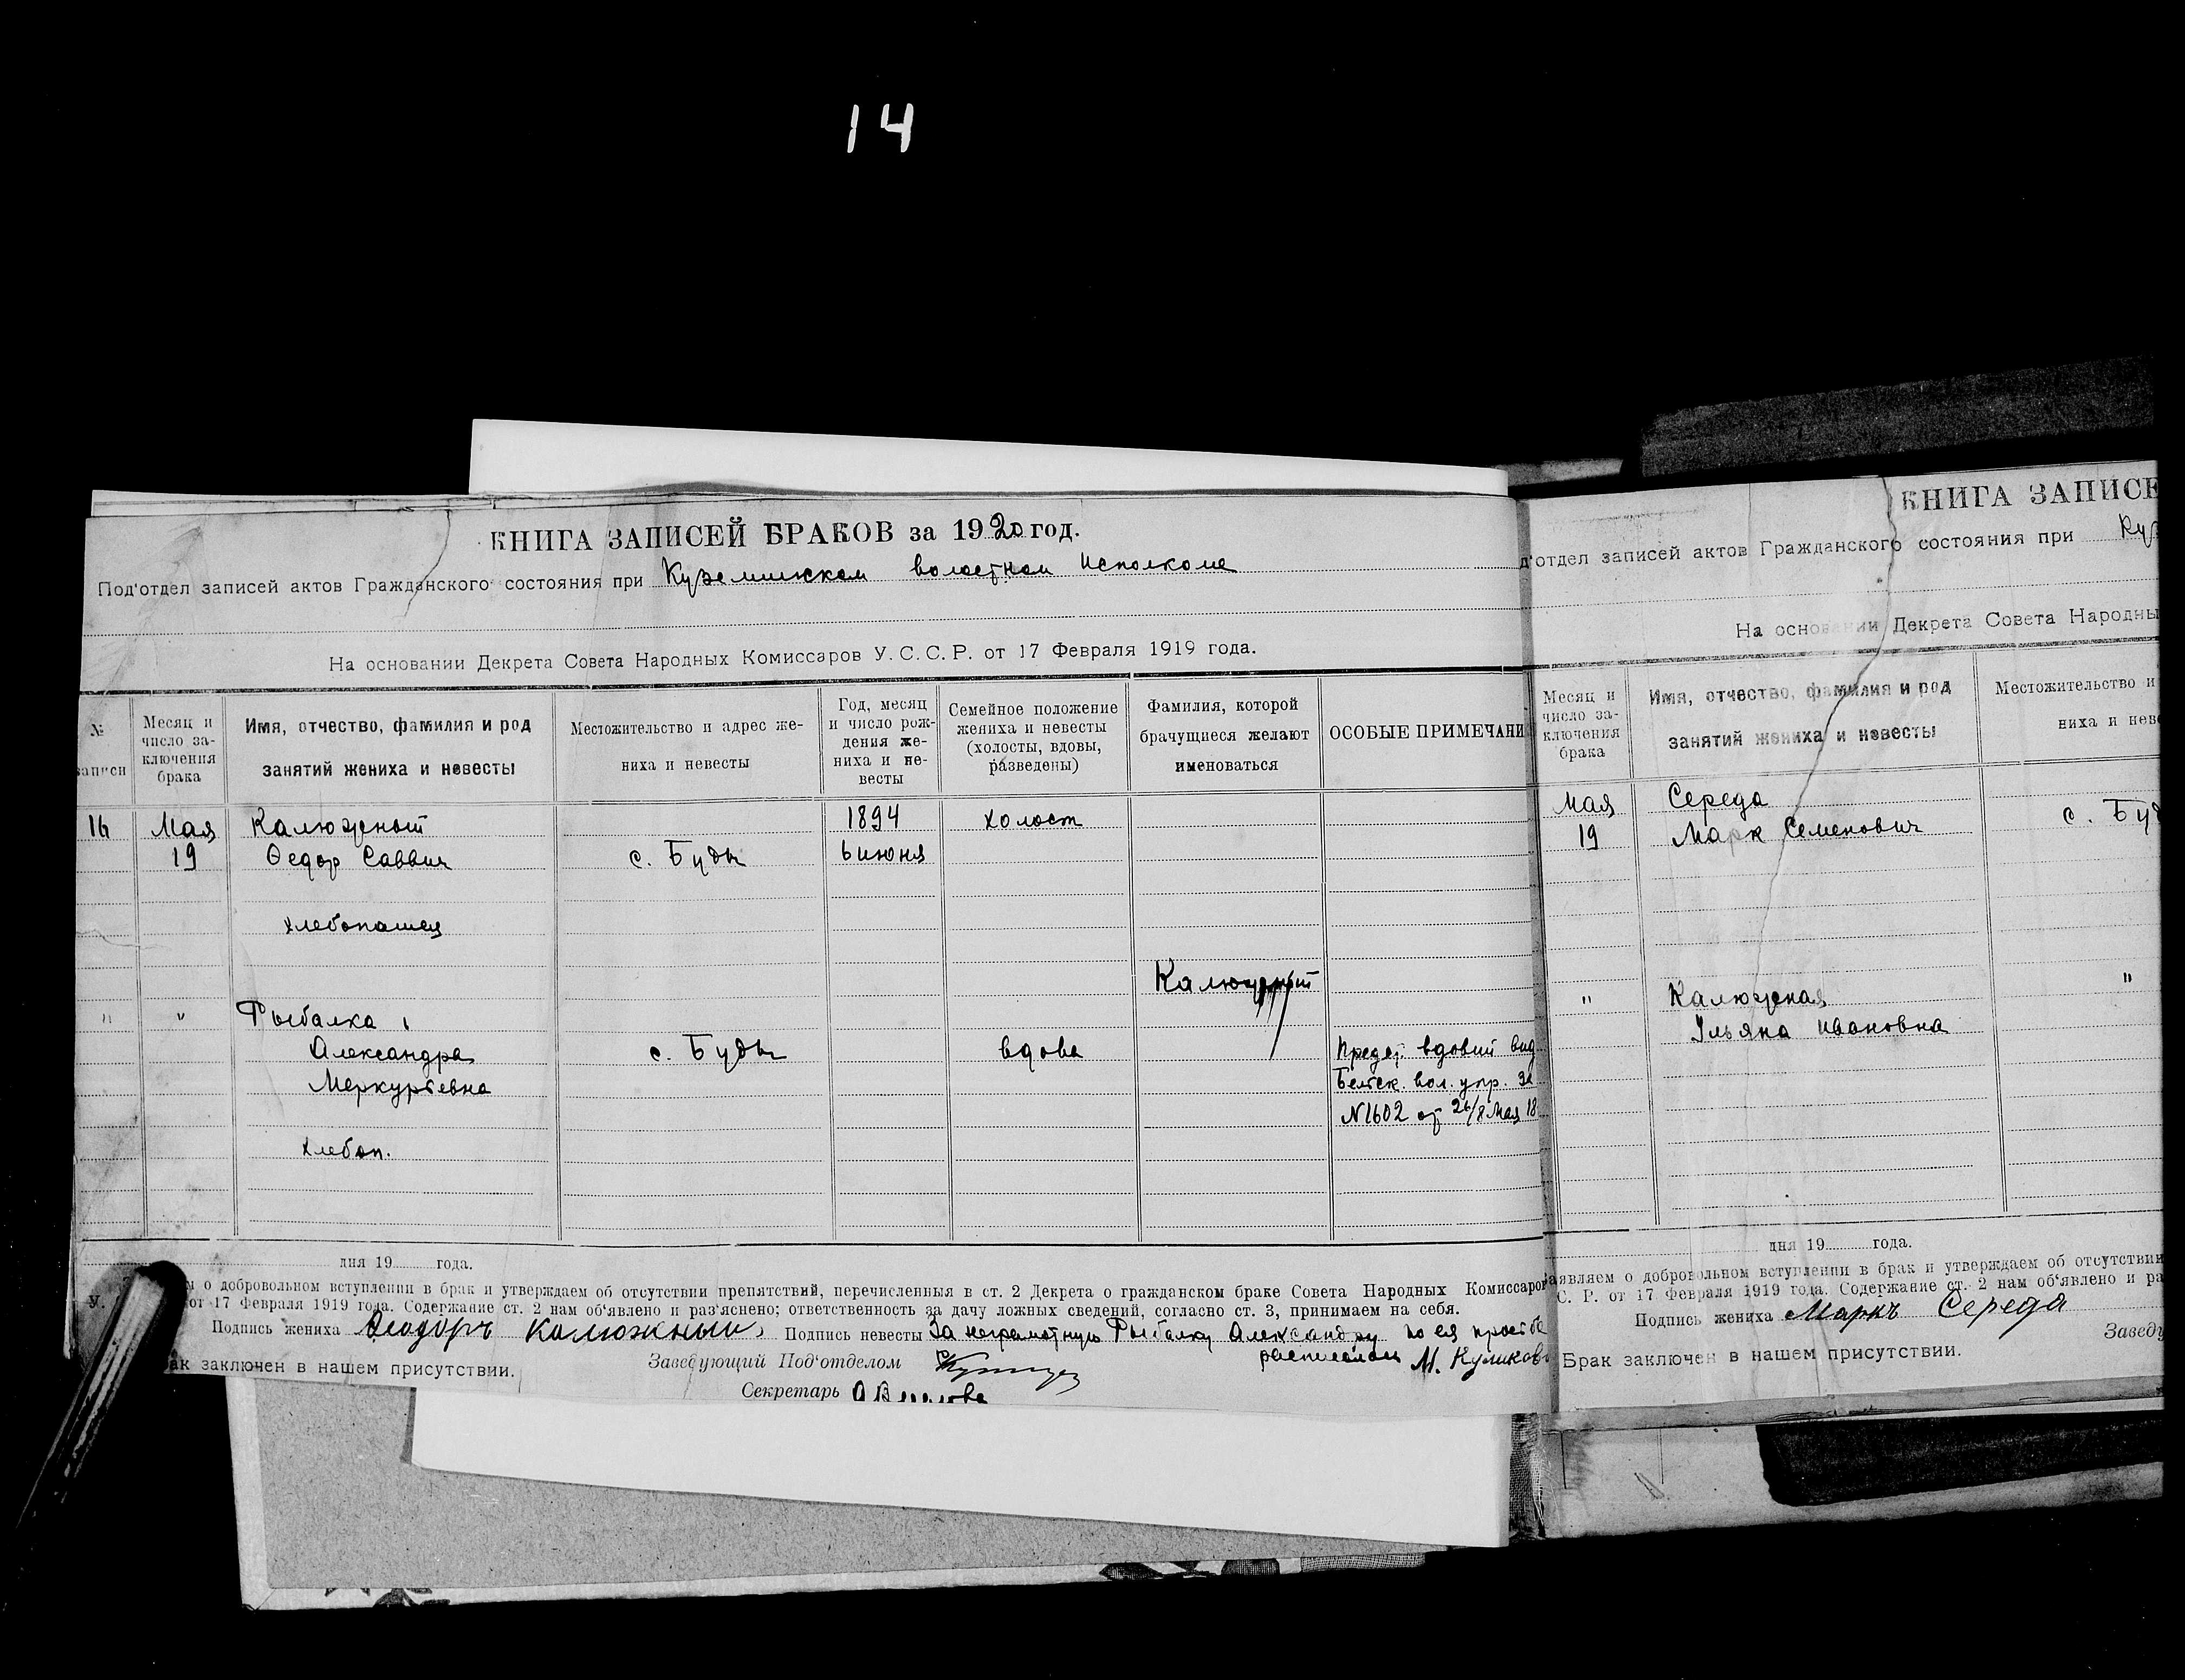 14
КНИГА ЗАПИСЕЙ БРАКОВ за 1920 год.
Под'отдел записей актов Гражданского состояния при Куземинском волостном Исполкоме
На основании Декрета Совета Народных Комиссаров У. С. С. Р. от 17 Февраля 1919 года.
№ записи
Месяц и число заключения брака
Имя, отчество, фамилия и род занятий жениха и невесты
Местожительство и адрес жениха и невесты
Год, месяц и число рождения жениха и невесты
Семейное положение жениха и невесты (холосты, вдовы, разведены)
Фамилия, которой брачущиеся желают именоваться
ОСОБЫЕ ПРИМЕЧАНИ
16 Мая Калюжный 1894 холост
19 Федор Саввич с. Буды 6 июня
хлебопашец
Калюжный
" " Рыбалка
Александра с. Буды вдова Предст. вдовий вид
Меркурьевна вол. упр. за
N1602 от 26/8 Мая 18
хлебоп.
дня 19 года.
м о добровольном вступлении в брак и утверждаем об отсутствии препятствий, перечисленныя в ст. 2 Декрета о гражданском браке Совета Народных Комиссаров
У. от 17 Февраля 1919 года. Содержание ст. 2 нам об'явлено и раз'яснено; ответственность за дачу ложных сведений, согласно ст. 3, принимаем на себя.
Подпись жениха Феодоръ Калюжный Подпись невесты За неграмотную Рыбалку Александру по ея просьбе
расписался М. Куликов
ак заключен в нашем присутствии. Заведующий Под'отделом
Секретарь
КНИГА ЗАПИСЕ
д'отдел записей актов Гражданского состояния при Куз
На основании Декрета Совета Народны
Месяц и число заключения брака
Имя, отчество, фамилия и род занятий жениха и невесты
Местожительство и
ниха и неве
Мая Середа
19 Марк Семенович с. Буд
" Калюжная "
Ульяна Ивановна
дня 19 года.
аявляем о добровольном вступлении в брак и утверждаем об отсутствии
С. Р. от 17 Февраля 1919 года. Содержание ст. 2 нам об'явлено и ра
Подпись жениха Маркъ Середа
Заведу
Брак заключен в нашем присутствии.